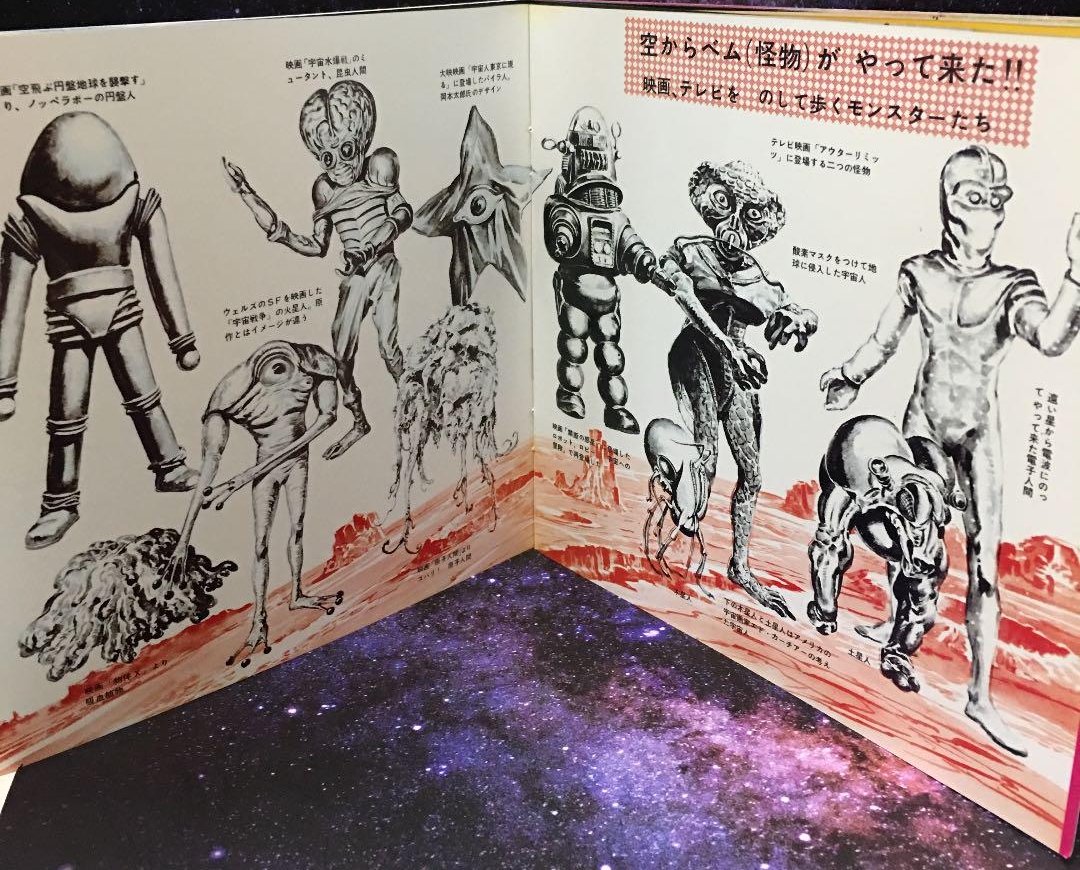 空からベム(怪物)が やって来た!!
映画、テレビを のして歩くモンスターたち
画「空飛ぶ円盤地球を襲撃す」
り、ノッペラボーの円盤人
映画「宇宙水爆戦」のミ
ュータント、昆虫人間
大映映画「宇宙人東京に現
る」に登場したパイラ人。
岡本太郎氏のデザイン
ウェルズのSFを映画した
『宇宙戦争』の火星人。原
作とはイメージが違う
テレビ映画「アウターリミッ
ツ」に登場する二つの怪物
酸素マスクをつけて地
球に侵入した宇宙人
遠い星から電波にのっ
てやって来た電子人間
映画「禁断の惑星」
ロボット、ロビ
で再登場
映画 より
映画「物体X」より
吸血植物
下の木星人と土星人はアメリカの
宇宙画家エド・カーチアーの考え
た宇宙人
土星人